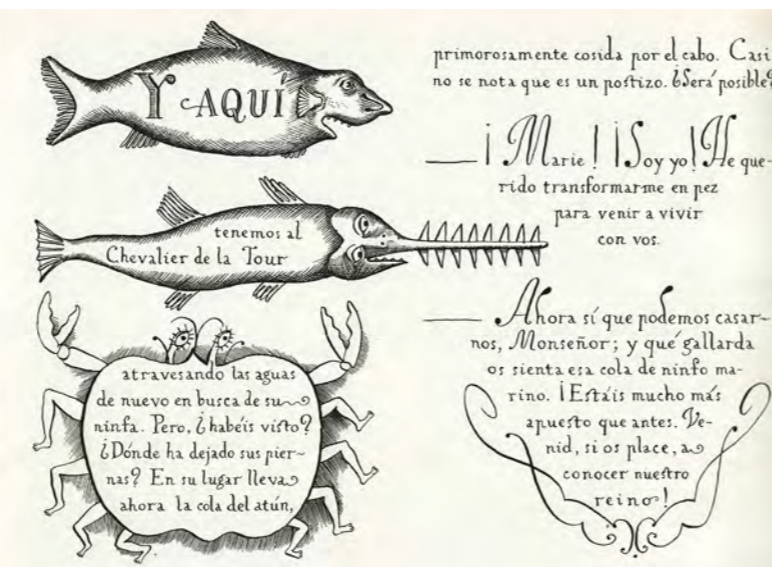 Y AQUÍ
tenemos al
Chevalier de la Tour
atravesando las aguas
de nuevo en busca de su
ninfa. Pero, ¿habéis visto?
¿Dónde ha dejado sus pier-
nas? En su lugar lleva
ahora la cola del atún,
primorosamente cosida por el cabo. Casi
no se nota que es un postizo. ¿Será posible?
— ¡Marie! ¡Soy yo! He que-
rido transformarme en pez
para venir a vivir
con vos.
— Ahora sí que podemos casar-
nos, Monseñor; y qué gallarda
os sienta esa cola de ninfo ma-
rino. ¡Estáis mucho más
apuesto que antes. Ve-
nid, si os place, a
conocer nuestro
reino!